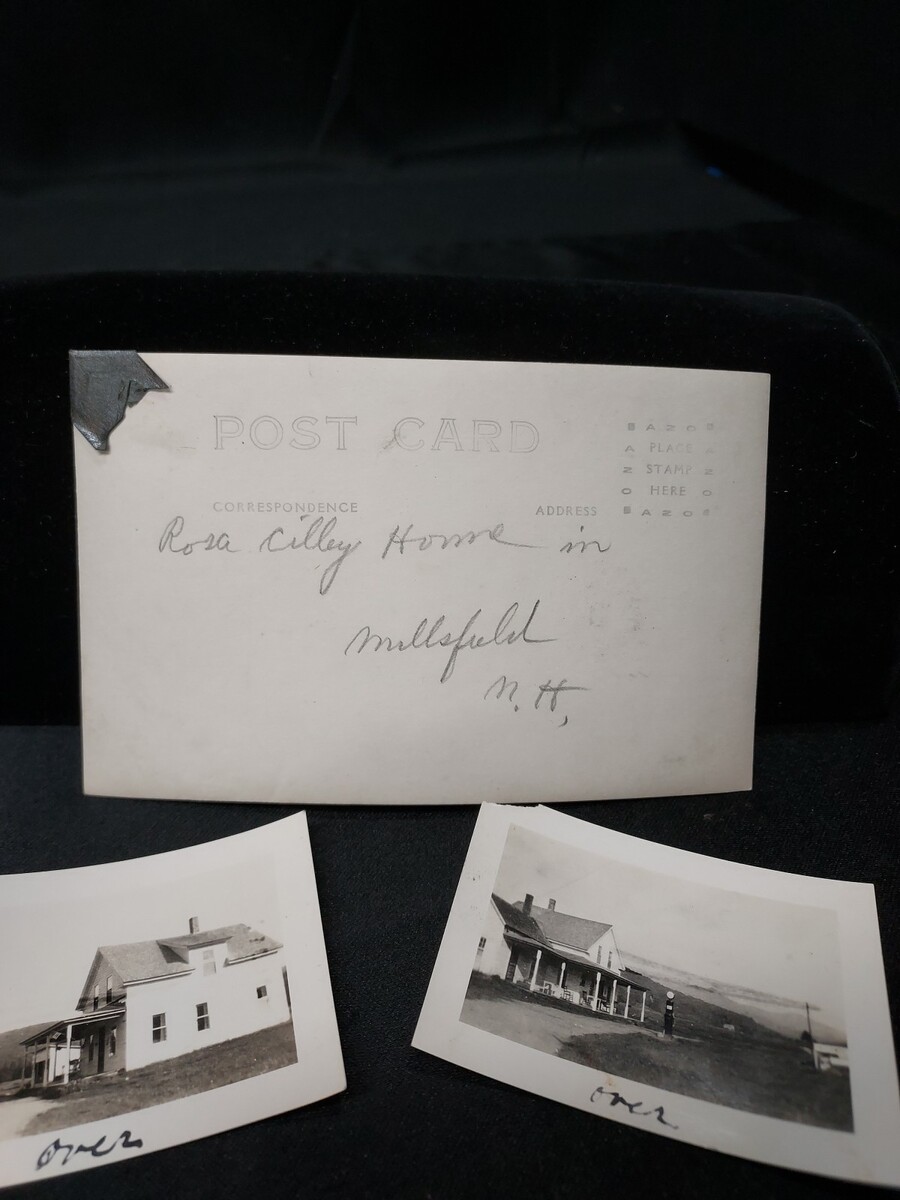 POST CARD
BAZO B
A PLACE A
Z STAMP Z
O HERE O
BAZO S
CORRESPONDENCE
ADDRESS
Rosa Cilley Home in
Millsfield
N. H.
over
over